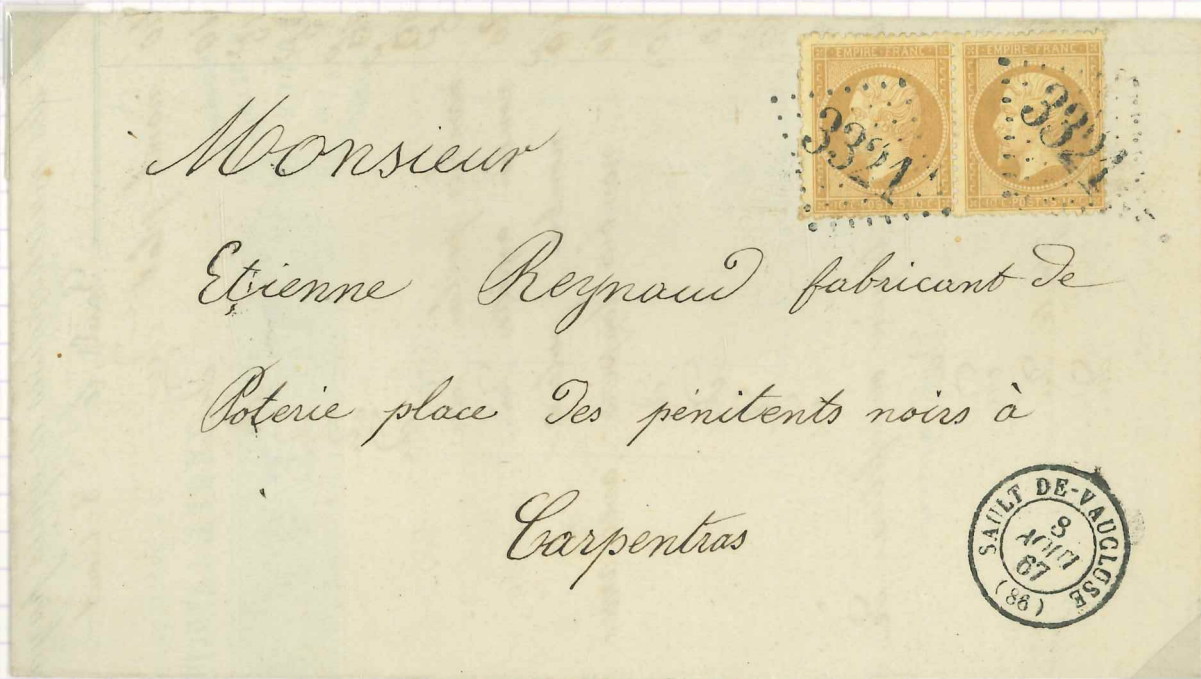 EMPIRE FRANC EMPIRE FRANC
3321 3321
10 C. POSTES 10 C. 10 C. POSTES
Monsieur
Etienne Reynaud fabricant de
Poterie place des pénitents noirs à
Carpentras
SAULT DE-VAUCLUSE
8
AOUT
67
(86)